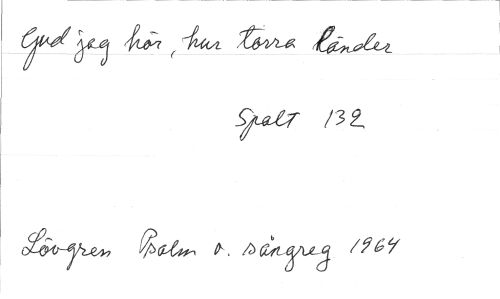 Gud jag hör, hur torra länder
Spalt 132
Lövgren Psalm o. sångreg 1964